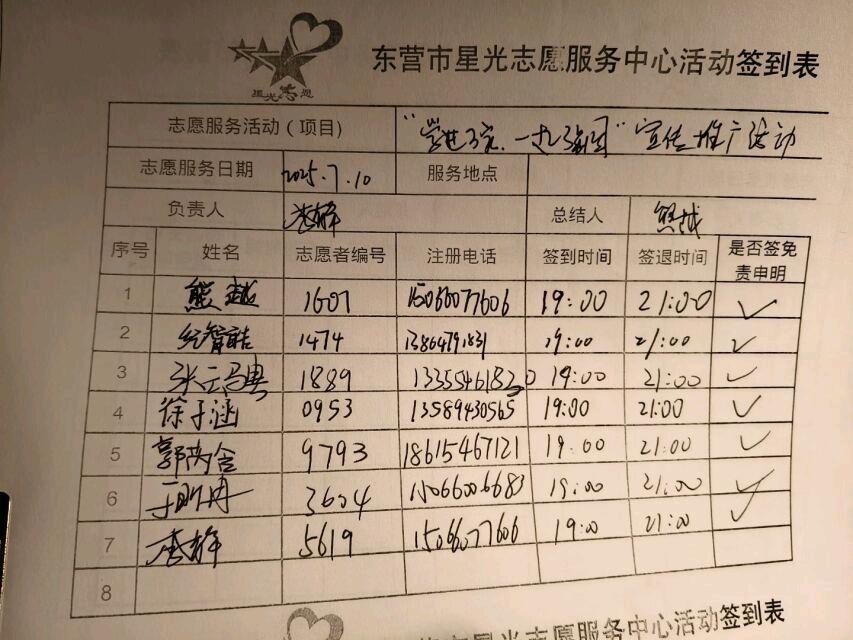 星光志愿
东营市星光志愿服务中心活动签到表
志愿服务活动（项目） 宣传推广活动
志愿服务日期 2025.7.10 服务地点
负责人 总结人 熊越
序号 姓名 志愿者编号 注册电话 签到时间 签退时间 是否签免责申明
1 熊越 1607 15066077606 19:00 21:00 ✓
2 1474 13864791831 19:00 21:00 ✓
3 1889 19:00 21:00 ✓
4 徐子涵 0953 13589430565 19:00 21:00 ✓
5 郭芮含 9793 18615467121 19:00 21:00 ✓
6 3604 15066006683 19:00 21:00 ✓
7 5619 15066077606 19:00 21:00 ✓
8
东营市星光志愿服务中心活动签到表